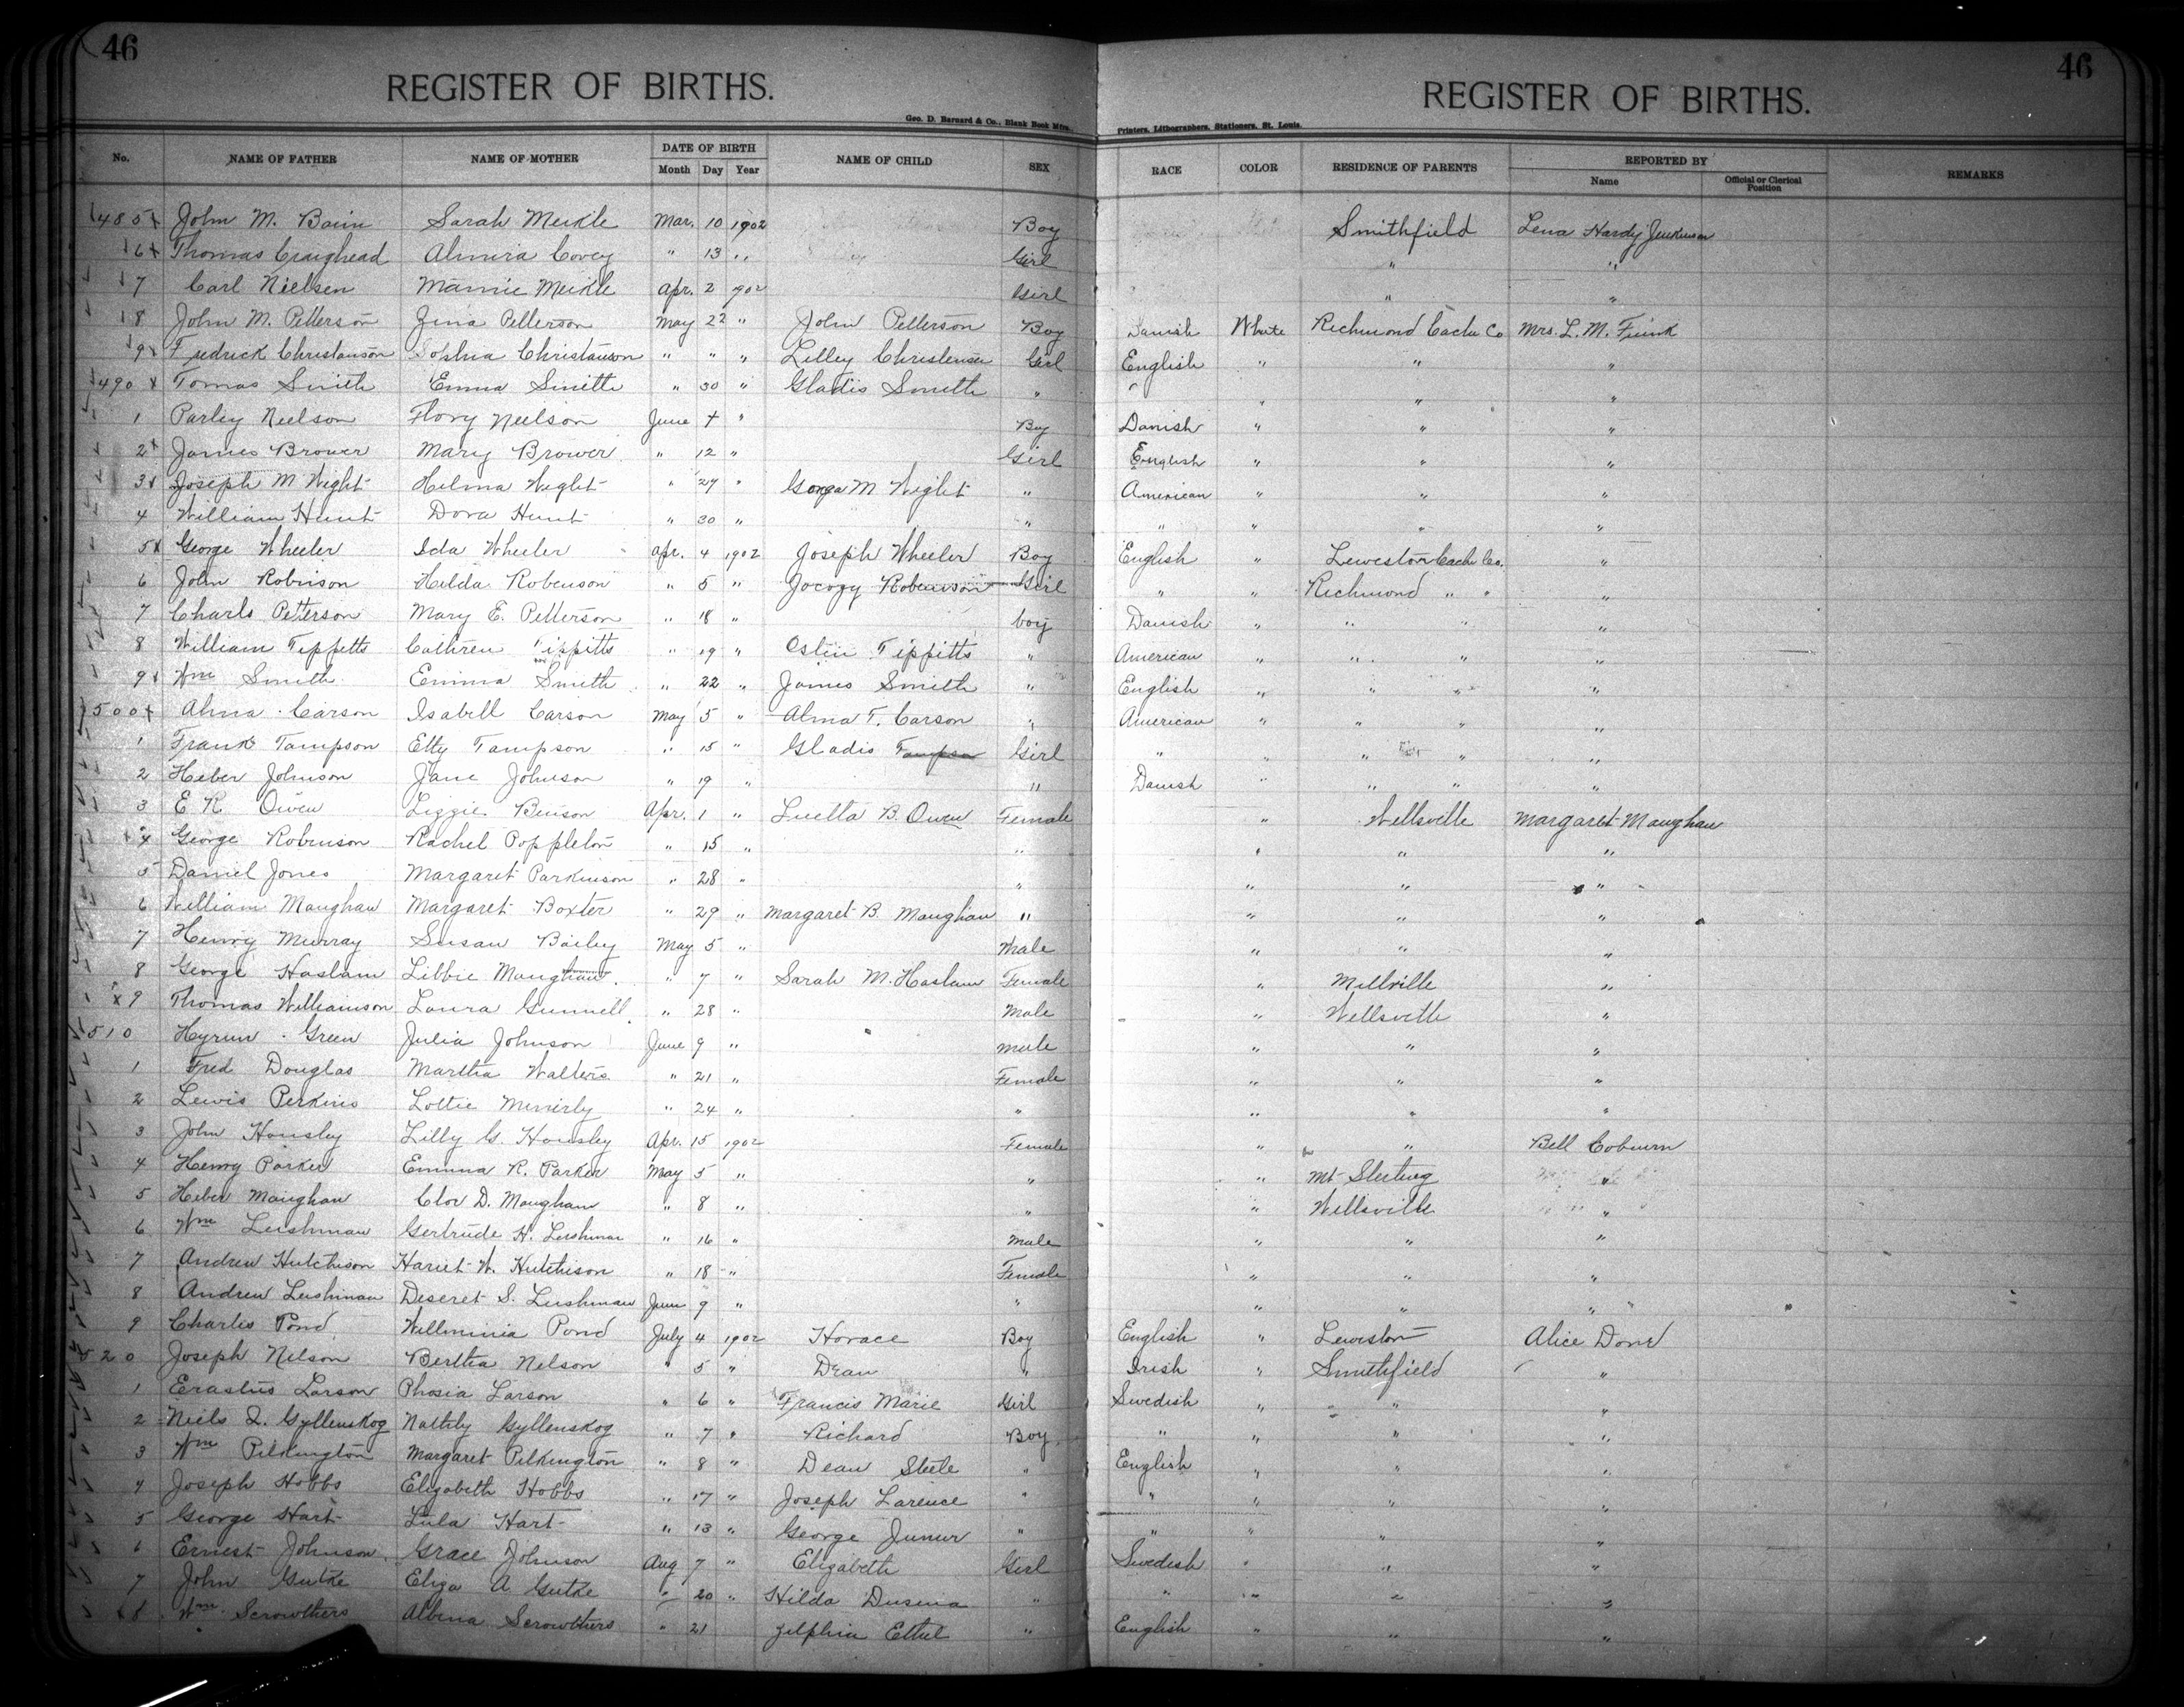 46
46
REGISTER OF BIRTHS.
REGISTER OF BIRTHS.
Geo. D. Barnard & Co., Blank Book Mfrs.
Printers, Lithographers, Stationers, St. Louis.
No. NAME OF FATHER NAME OF MOTHER DATE OF BIRTH Month Day Year NAME OF CHILD SEX RACE COLOR RESIDENCE OF PARENTS REPORTED BY Name Official or Clerical Position REMARKS
485 John M. Bain Sarah Meikle Mar. 10 1902 Boy Smithfield Lena Hardy Jenkinson
6 Thomas Craighead Almira Covey " 13 " Girl " "
7 Carl Nielsen Mamie Meikle Apr. 2 902 Girl " "
8 John M. Petterson Zina Petterson May 22 " John Petterson Boy Danish White Richmond Cache Co Mrs. L. M. Funk
9 Fredrick Christanson Sophia Christanson " " " Lilley Christensen Girl English " " "
490 Tomas Smith Emma Smith " 30 " Gladis Smith " " " " "
1 Parley Neelson Flory Neelson June 4 " Boy Danish " " "
2 James Brower Mary Brower " 12 " Girl English " " "
3 Joseph M Wight Helma Wight " 27 " M Wight " American " " "
4 William Hunt Dora Hunt " 30 " " " " " "
5 George Wheeler Ida Wheeler Apr. 4 1902 Joseph Wheeler Boy English " Leweston Cache Co. "
6 John Robinson Hilda Robenson " 5 " Robenson Girl " " Richmond " " "
7 Charls Petterson Mary E. Petterson " 18 " boy Danish " " " "
8 William Tippetts Cathren Tippitts " 19 " Ostin Tippitts " American " " " "
9 Wm Smith Emma Smith " 22 " James Smith " English " " " "
500 Alma Carson Isabell Carson May 5 " Alma T. Carson " American " " " "
1 Frank Tampson Etty Tampson " 15 " Gladis Tampson Girl " " " " "
2 Heber Johnson Jane Johnson " 19 " " Danish " " " "
3 E R. Owen Lizzie Benson Apr. 1 " Luella B. Owen Female " Wellsville Margaret Maughan
4 George Robinson Rachel Poppleton " 15 " " " " "
5 Daniel Jones Margaret Parkinson " 28 " " " " "
6 William Maughan Margaret Boxter " 29 " Margaret B. Maughan " " " "
7 Henry Murray Susan Bailey May 5 " Male " " "
8 George Haslam Libbie Maughan " 7 " Sarah M. Haslam Female " Millville "
9 Thomas Williamson Laura Gunnell " 28 " Male " Wellsville "
510 Hyrum Green Julia Johnson June 9 " male " " "
1 Fred Douglas Martha Walters " 21 " Female " " "
2 Lewis Perkins Lottie " 24 " " " " "
3 John Housley Lilly G. Housley Apr. 15 1902 Female " " Bell Coburn
4 Henry Parker Emma R. Parker May 5 " " " Mt Sterling "
5 Heber Maughan Clor D. Maughan " 8 " " " Wellsville "
6 Wm Leishman Gertrude H. Leishman " 16 " male " " "
7 Andrew Hutchison Hariet W. Hutchison " 18 " Female " " "
8 Andrew Leishman Deseret S. Leishman June 9 " " " " "
9 Charles Pond Willminia Pond July 4 1902 Horace Boy English " Leweston Alice Done
520 Joseph Nelson Bertha Nelson " 5 " Dean " Irish " Smithfield "
1 Erastus Larson Phosia Larson " 6 " Francis Marie Girl Swedish " " "
2 Niels Gyllenskog Gyllenskog " 7 " Richard Boy " " " "
3 Wm Pilkington Margaret Pilkington " 8 " Dean Steele " English " " "
4 Joseph Hobbs Elizabeth Hobbs " 17 " Joseph Larence " " " " "
5 George Hart Lula Hart " 13 " George Junur " " " " "
6 Ernest Johnson Grace Johnson Aug 7 " Elizabeth Girl Swedish " " "
7 John Gutke Eliza A Gutke " 20 " Hilda Dusina " " " " "
8 Wm. Scrowthers Albina Scrowthers " 21 Zelphia Ethel " English " " "